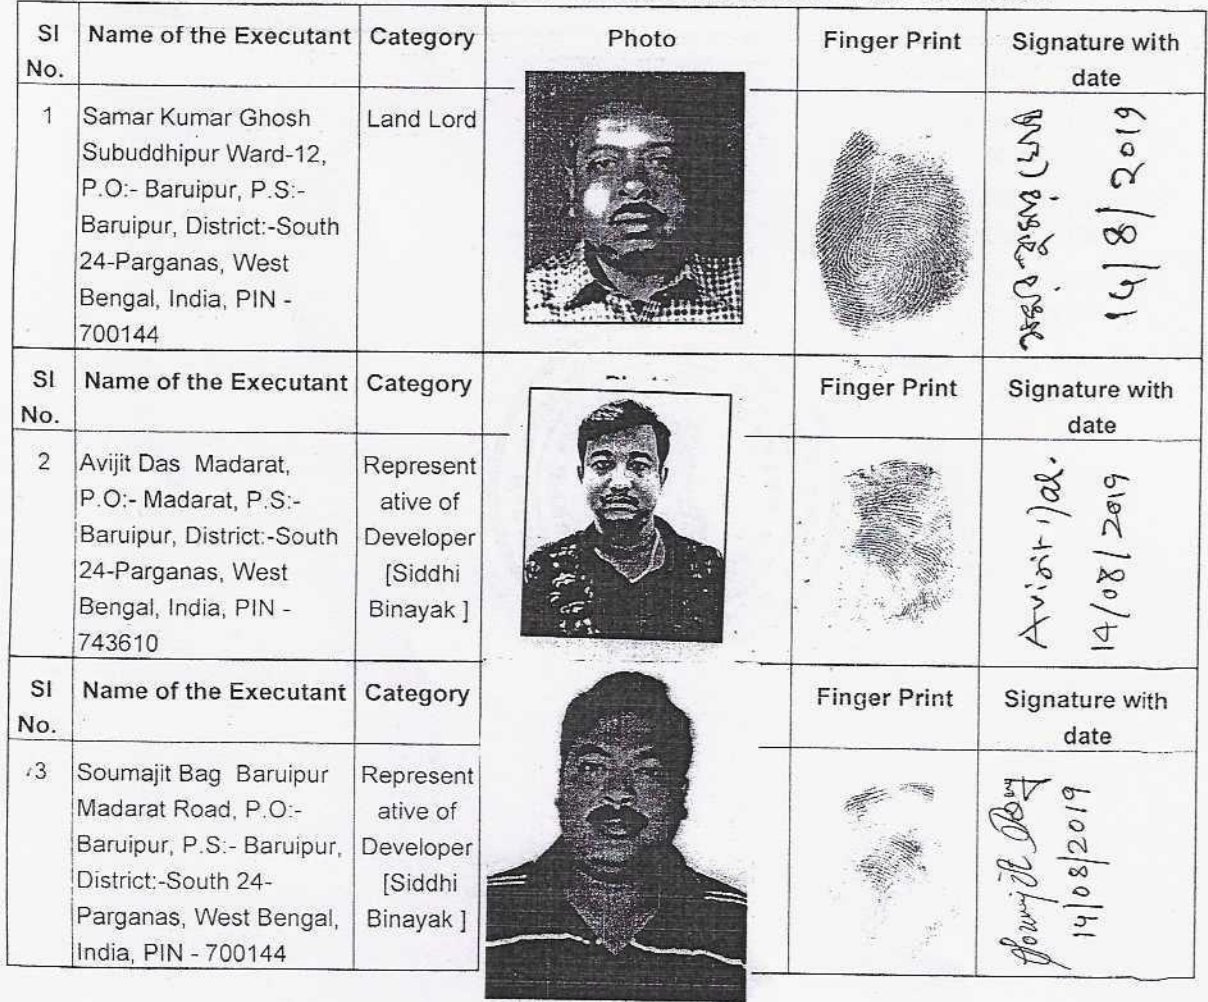 Sl No. Name of the Executant Category Photo Finger Print Signature with date
1 Samar Kumar Ghosh
Subuddhipur Ward-12,
P.O:- Baruipur, P.S:-
Baruipur, District:-South
24-Parganas, West
Bengal, India, PIN -
700144
Land Lord
সমর কুমার ঘোষ
14/8/2019
Sl No. Name of the Executant Category Finger Print Signature with date
2 Avijit Das Madarat,
P.O:- Madarat, P.S:-
Baruipur, District:-South
24-Parganas, West
Bengal, India, PIN -
743610
Represent
ative of
Developer
[Siddhi
Binayak ]
Avijit Das.
14/08/2019
Sl No. Name of the Executant Category Finger Print Signature with date
3 Soumajit Bag Baruipur
Madarat Road, P.O:-
Baruipur, P.S:- Baruipur,
District:-South 24-
Parganas, West Bengal,
India, PIN - 700144
Represent
ative of
Developer
[Siddhi
Binayak ]
Soumajit Bag
14/08/2019